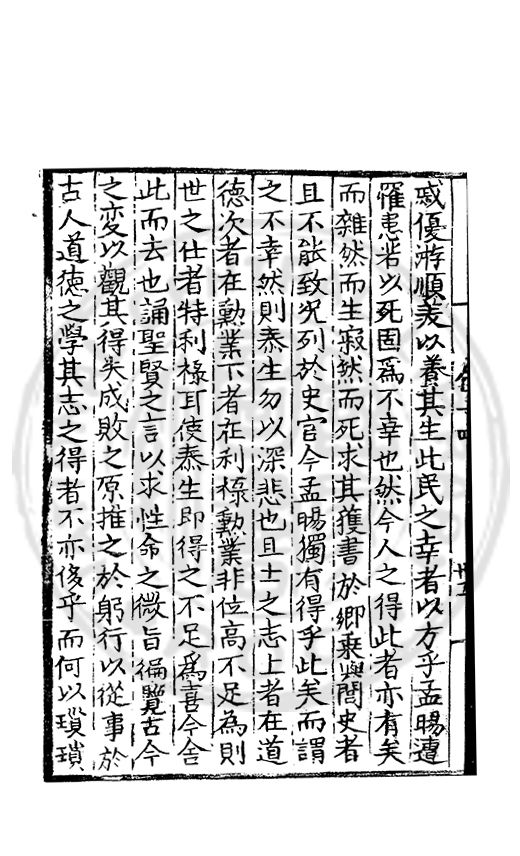 戚優游順羙以養其生此民之幸者以方乎孟暘遭
罹患若以死固爲不幸也然今人之得此者亦有矣
而雜然而生寂然而死求其獲書於鄉乘與閭史者
且不能致況列於史官今孟暘獨有得乎此矣而謂
之不幸然則泰生勿以深悲也且士之志上者在道
德次者在勳業下者在利祿勳業非位高不足為則
世之仕者特利祿耳使泰生即得之不足爲喜今舍
此而去也誦聖賢之言以求性命之微旨徧覽古今
之変以觀其得失成敗之原推之於躬行以從事於
古人道德之學其志之得者不亦侈乎而何以瑣瑣
十四
廿五